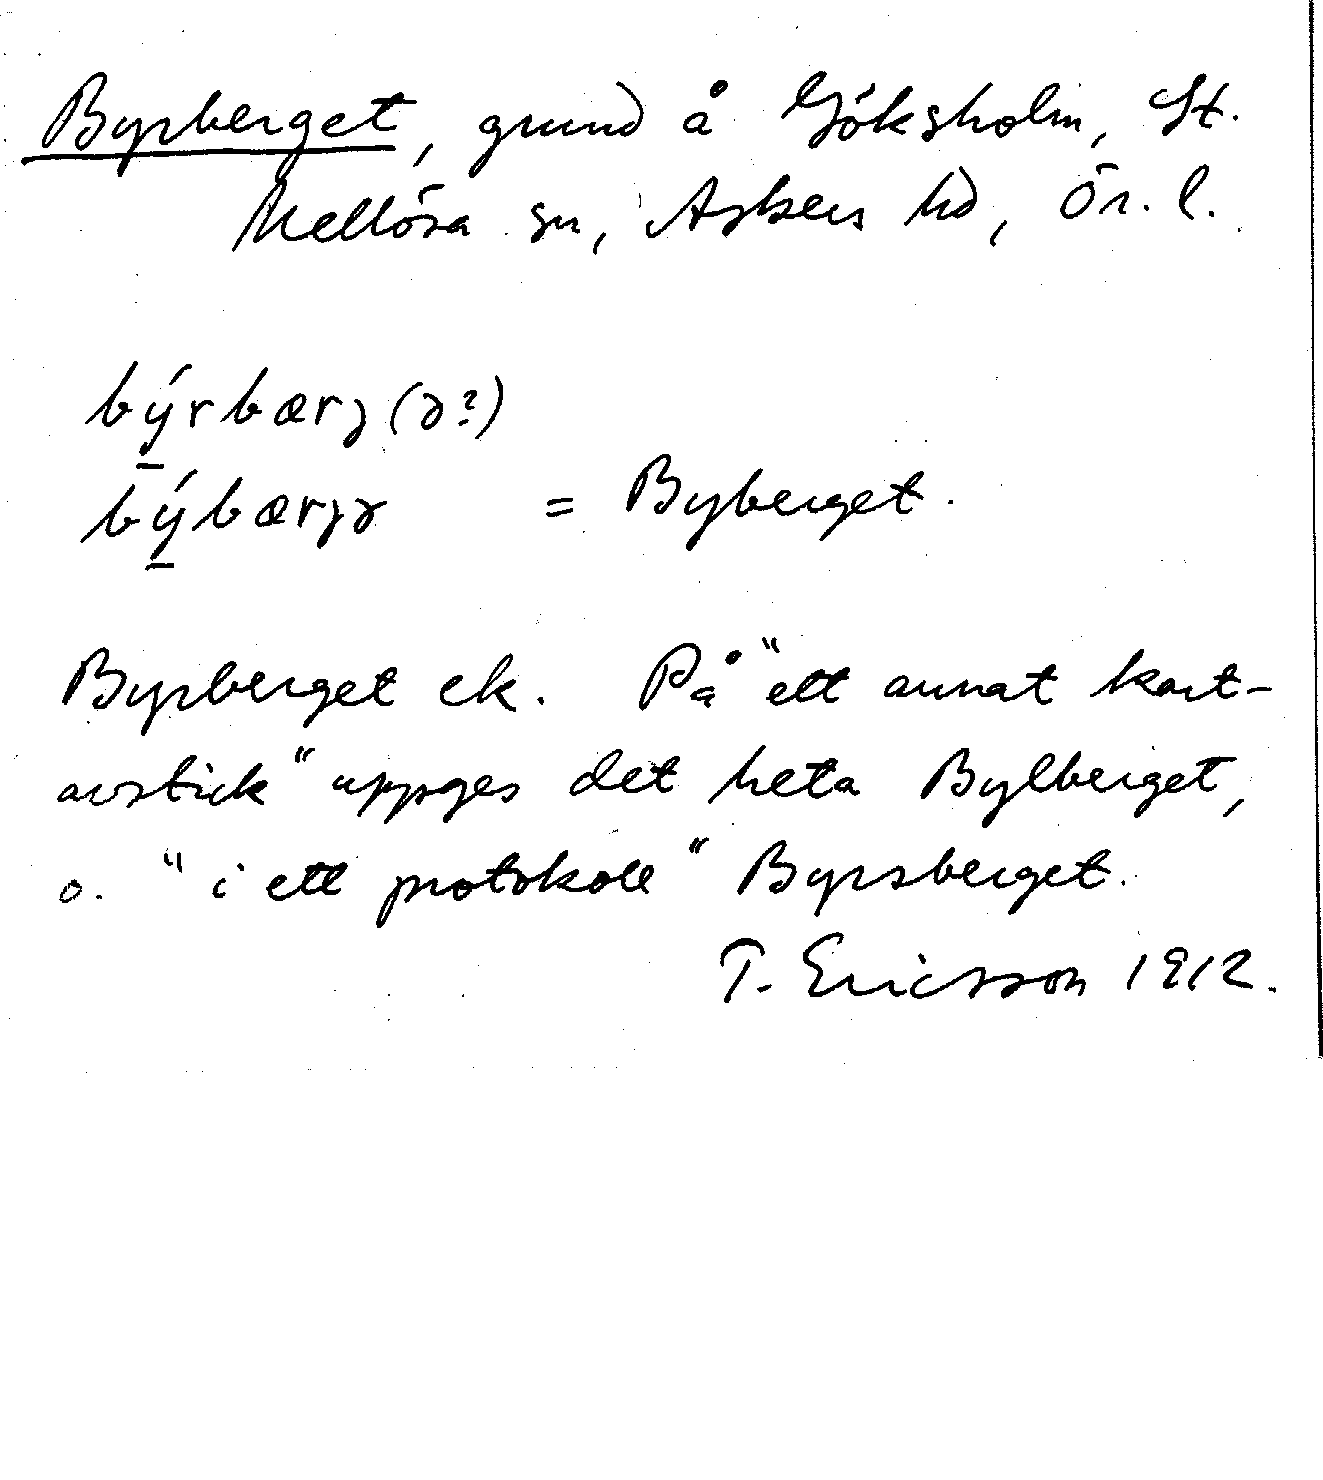 Byrberget, grund å Göksholm, St.
Mellösa sn, Askers hd, Ör. l.
býrbærȷ(ə?)
býbærȷə = Byberget.
Byrberget ek. På "ett annat kart-
avstick" uppges det heta Bylberget,
o. "i ett protokoll" Byrsberget.
T. Ericsson 1912.